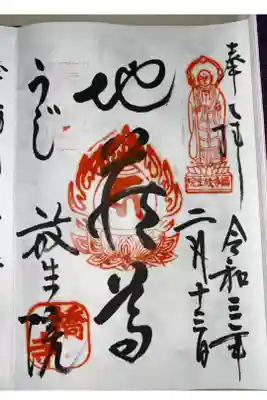 奉拝
令和三年
二月十三日
地蔵尊
うじ
放生院
橋寺